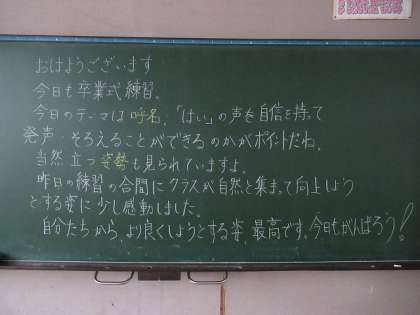 おはようございます
今日も卒業式練習。
今日のテーマは呼名。「はい」の声を自信を持って
発声・そろえることができるのかがポイントだね。
当然立つ姿勢も見られていますよ。
昨日の練習の合間にクラスが自然と集まって向上しよう
とする姿に少し感動しました。
自分たちから、より良くしようとする姿、最高です。今日もがんばろう!